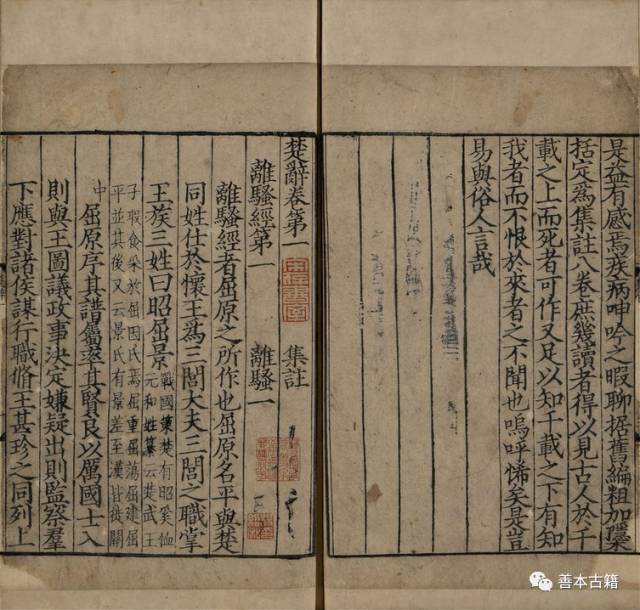 是益有感焉疾病呻吟之暇聊据舊編粗加櫽
括定爲集註八卷庶幾讀者得以見古人於千
載之上而死者可作又足以知千載之下有知
我者而不恨於來者之不聞也嗚呼悕矣是豈
易與俗人言哉
楚辭卷第一 集註
離騷經第一 離騷一
離騷經者屈原之所作也屈原名平與楚
同姓仕於懷王爲三閭大夫三閭之職掌
王族三姓曰昭屈景
戰國策楚有昭奚恤
元和姓纂云楚武王
子瑕食采於屈因氏焉屈重屈蕩屈建屈
平並其後又云景氏有景差至漢皆徙關
中 屈原序其譜屬率其賢良以厲國士入
則與王圖議政事決定嫌疑出則監察羣
下應對諸侯謀行職脩王甚珍之同列上
善本古籍